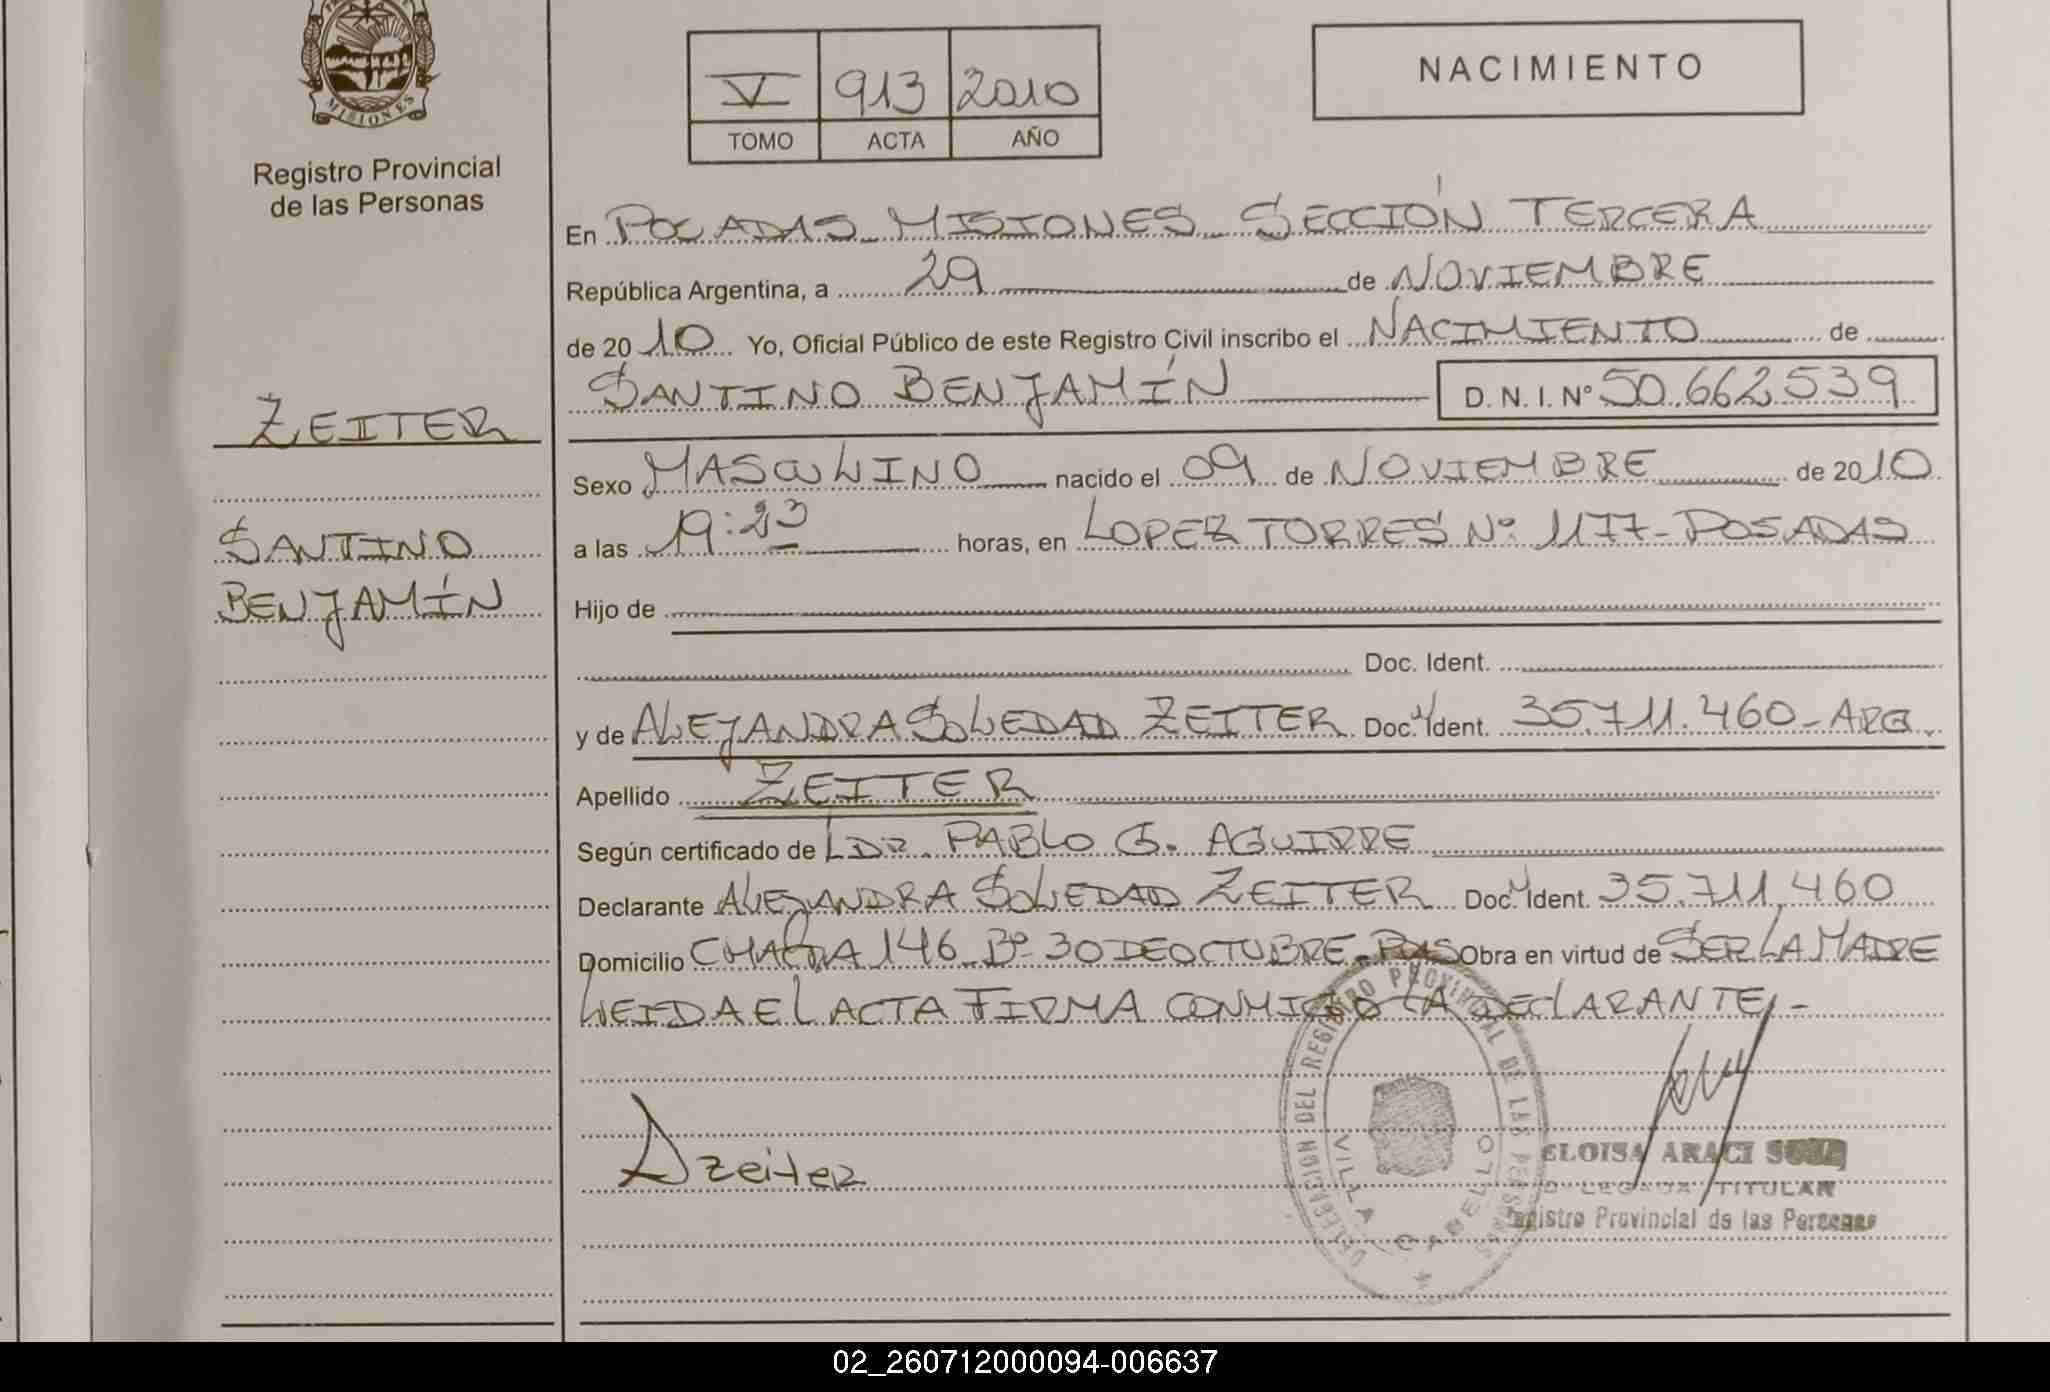 MISIONES
Registro Provincial
de las Personas
V 913 2010
TOMO ACTA AÑO
NACIMIENTO
En POSADAS MISIONES SECCIÓN TERCERA
República Argentina, a 29 de NOVIEMBRE
de 2010 Yo, Oficial Público de este Registro Civil inscribo el NACIMIENTO de
SANTINO BENJAMÍN D. N. I. Nº 50.662.539
ZEITER
SANTINO
BENJAMÍN
Sexo MASCULINO nacido el 09 de NOVIEMBRE de 2010
a las 19:23 horas, en LOPEZ TORRES Nº 1177-POSADAS
Hijo de
Doc. Ident.
y de ALEJANDRA SOLEDAD ZEITER Doc. Ident. 35.711.460-ARG.
Apellido ZEITER
Según certificado de LDO. PABLO G. AGUIRRE
Declarante ALEJANDRA SOLEDAD ZEITER Doc. Ident. 35.711.460
Domicilio CHACRA 146 Bº 30 DE OCTUBRE-POS Obra en virtud de SER LA MADRE
LEIDA EL ACTA FIRMA CONMIGO LA DECLARANTE.-
Azeiter
DELEGACION DEL REGISTRO PROVINCIAL DE LAS PERSONAS
VILLA CABELLO
ELOISA ARACI
DELEGADA TITULAR
Registro Provincial de las Personas
02_260712000094-006637